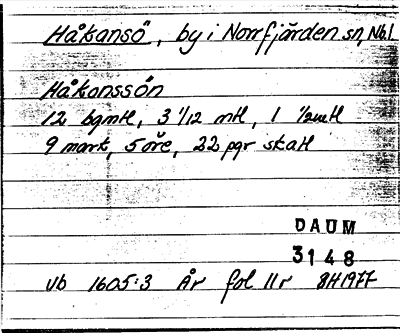 Håkansö, by i Norrfjärden sn, Nb l
Håkanssön
12 bgmtl, 3 1/12 mtl, 1 1/2mtl
9 mark, 5 öre, 22 pgr skatt
DAUM
3148
Vb 1605:3 År fol 11r 8H1977